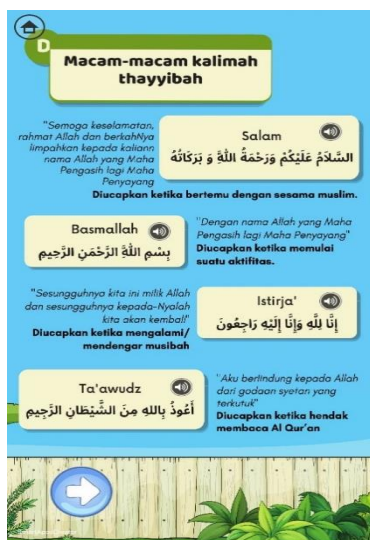 D
Macam-macam kalimah
thayyibah
"Semoga keselamatan,
rahmat Allah dan berkahNya
limpahkan kepada kaliann
nama Allah yang Maha
Pengasih lagi Maha
Penyayang
Salam
السَّلَامُ عَلَيْكُمْ وَرَحْمَةُ اللَّهِ وَ بَرَكَاتُهُ
Diucapkan ketika bertemu dengan sesama muslim.
Basmallah
بِسْمِ اللَّهِ الرَّحْمَنِ الرَّحِيمِ
"Dengan nama Allah yang Maha
Pengasih lagi Maha Penyayang"
Diucapkan ketika memulai
suatu aktifitas.
"Sesungguhnya kita ini milik Allah
dan sesungguhnya kepada-Nyalah
kita akan kembali"
Diucapkan ketika mengalami/
mendengar musibah
Istirja'
إِنَّا لِلَّهِ وَإِنَّا إِلَيْهِ رَاجِعُونَ
Ta'awudz
أَعُوذُ بِاللهِ مِنَ الشَّيْطَانِ الرَّجِيمِ
"Aku berlindung kepada Allah
dari godaan syetan yang
terkutuk"
Diucapkan ketika hendak
membaca Al Qur'an